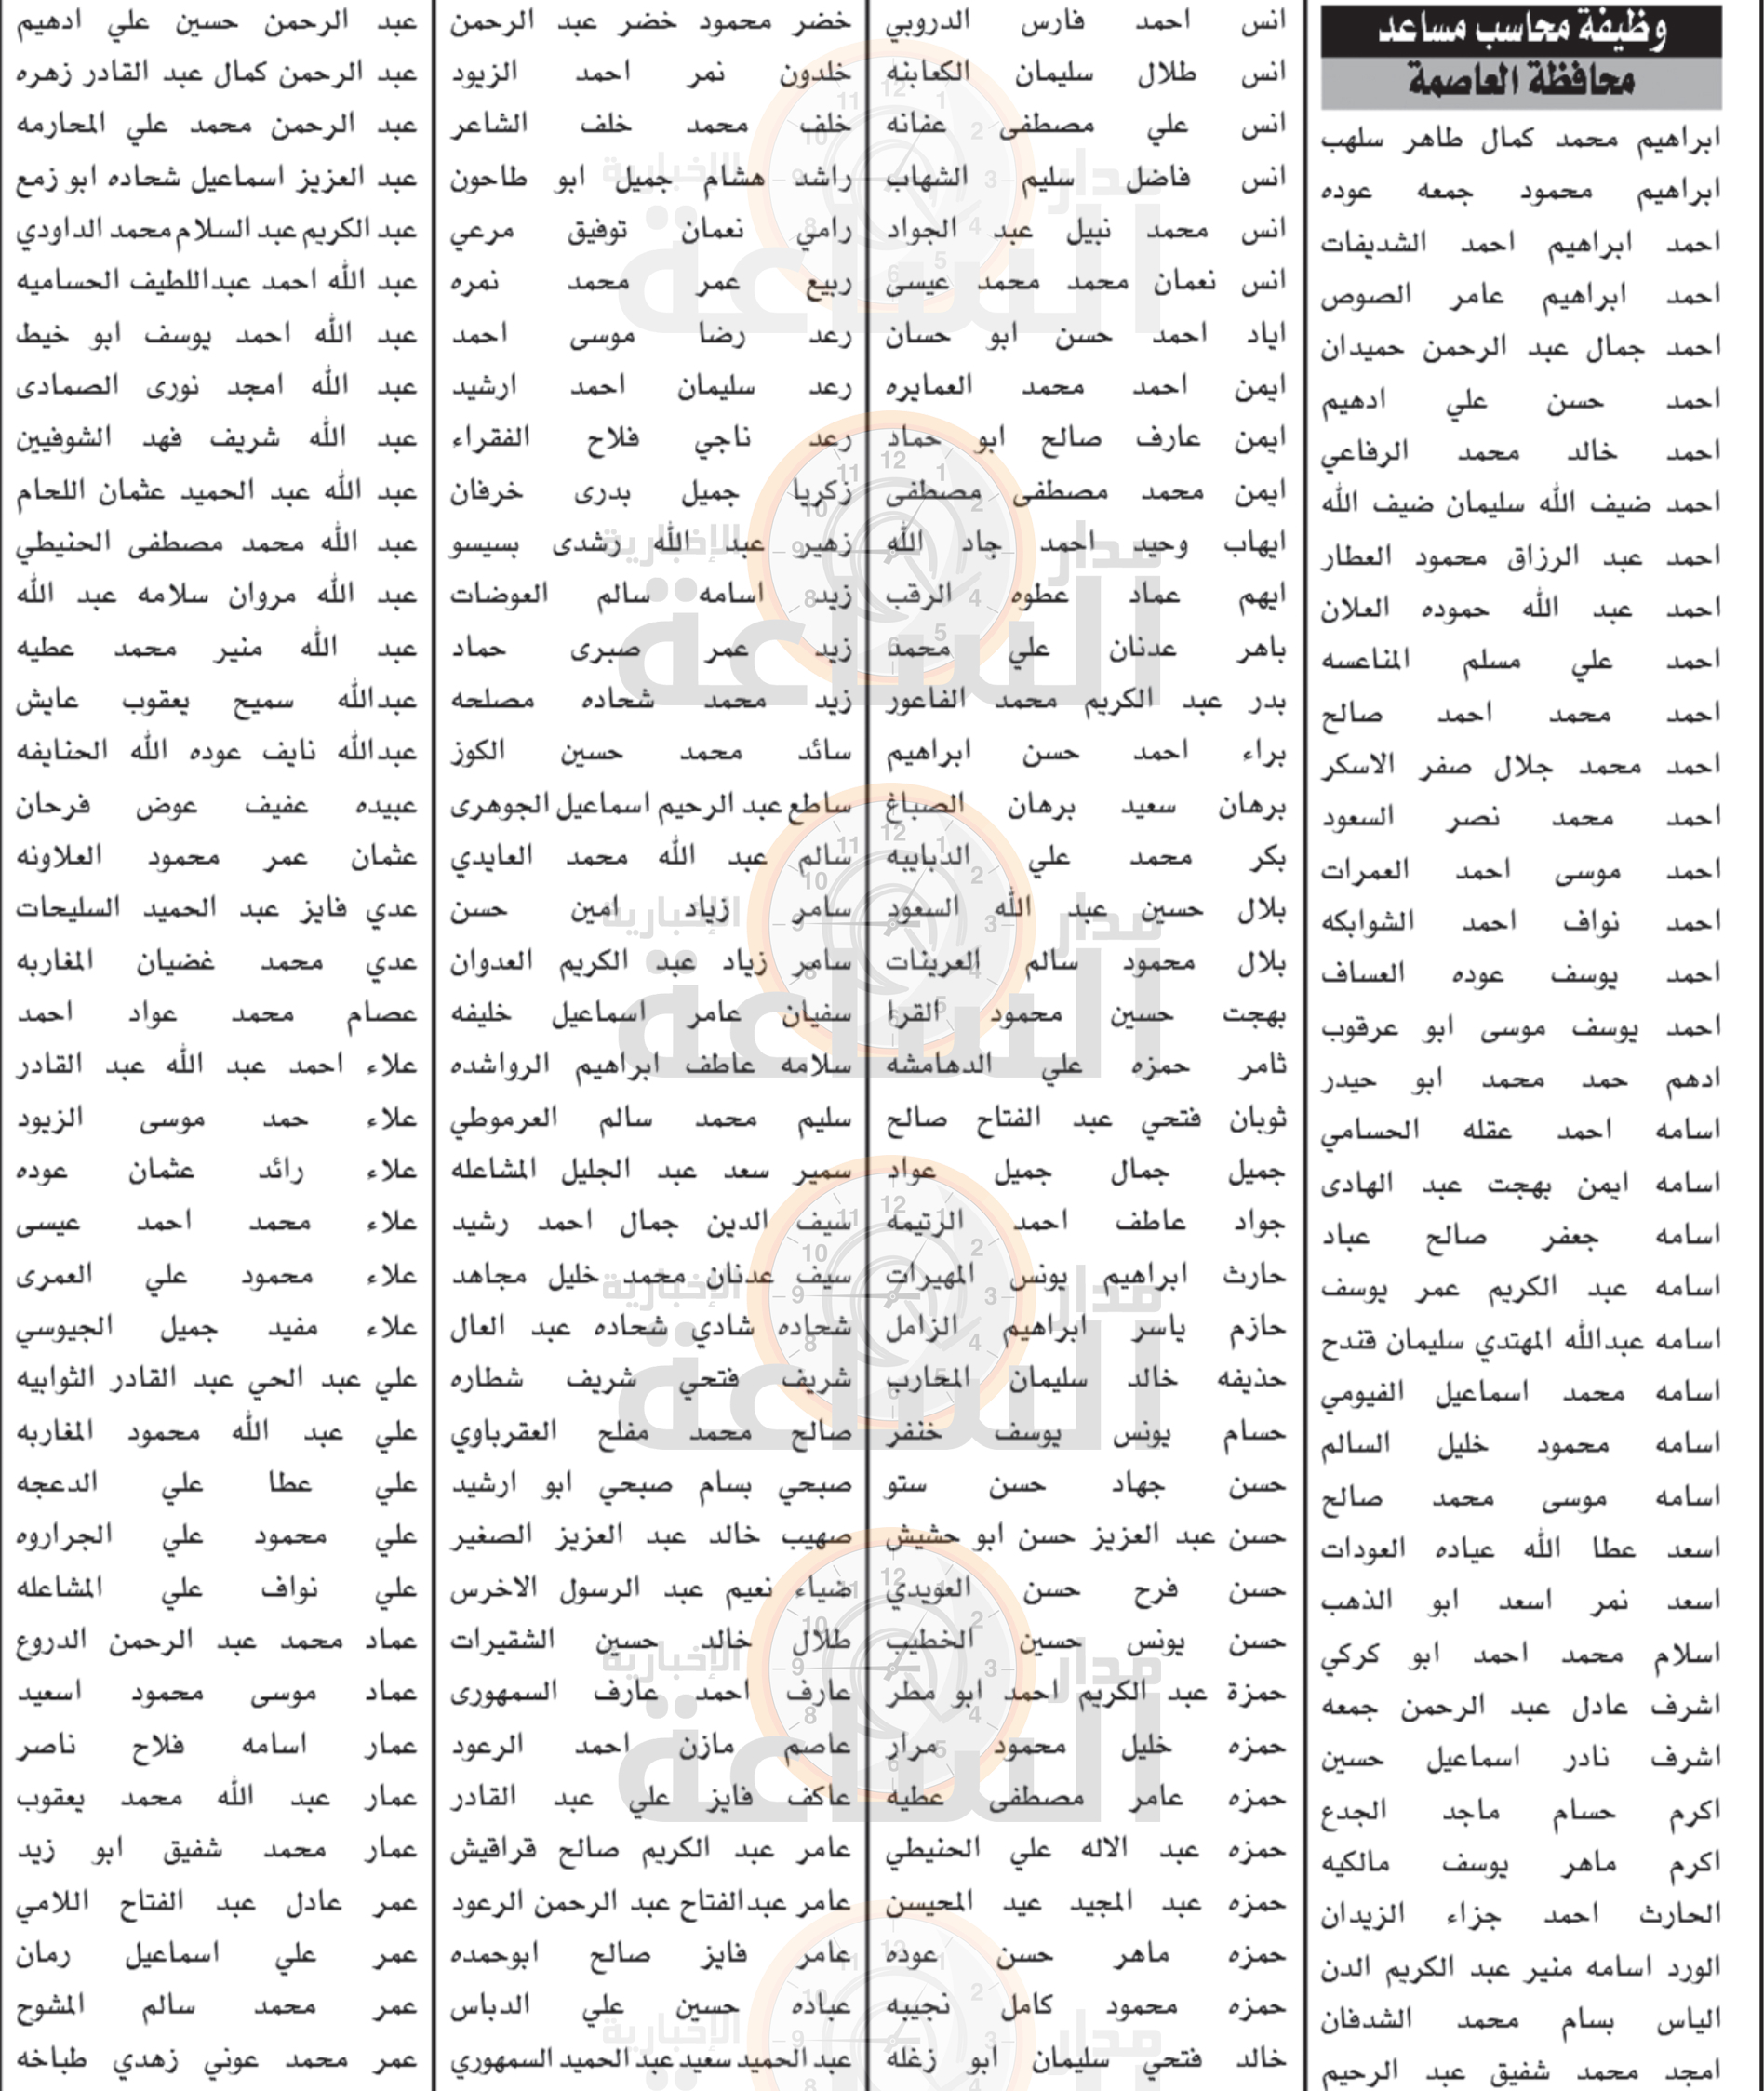 وظيفة محاسب مساعد
محافظة العاصمة
ابراهيم محمد كمال طاهر سلهب
ابراهيم محمود جمعه عوده
احمد ابراهيم احمد الشديفات
احمد ابراهيم عامر الصوص
احمد جمال عبد الرحمن حميدان
احمد حسن علي ادهيم
احمد خالد محمد الرفاعي
احمد ضيف الله سليمان ضيف الله
احمد عبد الرزاق محمود العطار
احمد عبد الله حموده العلان
احمد علي مسلم المناعسه
احمد محمد احمد صالح
احمد محمد جلال صفر الاسكر
احمد محمد نصر السعود
احمد موسى احمد العمرات
احمد نواف احمد الشوابكه
احمد يوسف عوده العساف
احمد يوسف موسى ابو عرقوب
ادهم حمد محمد ابو حيدر
اسامه احمد عقله الحسامي
اسامه ايمن بهجت عبد الهادى
اسامه جعفر صالح عباد
اسامه عبد الكريم عمر يوسف
اسامه عبدالله المهتدي سليمان قندح
اسامه محمد اسماعيل الفيومي
اسامه محمود خليل السالم
اسامه موسى محمد صالح
اسعد عطا الله عياده العودات
اسعد نمر اسعد ابو الذهب
اسلام محمد احمد ابو كركي
اشرف عادل عبد الرحمن جمعه
اشرف نادر اسماعيل حسين
اكرم حسام ماجد الجدع
اكرم ماهر يوسف مالكيه
الحارث احمد جزاء الزيدان
الورد اسامه منير عبد الكريم الدن
الياس بسام محمد الشدفان
امجد محمد شفيق عبد الرحيم
انس احمد فارس الدروبي
انس طلال سليمان الكعابنه
انس علي مصطفى عفانه
انس فاضل سليم الشهاب
انس محمد نبيل عبد الجواد
انس نعمان محمد محمد عيسى
اياد احمد حسن ابو حسان
ايمن احمد محمد العمايره
ايمن عارف صالح ابو حماد
ايمن محمد مصطفى مصطفى
ايهاب وحيد احمد جاد الله
ايهم عماد عطوه الرقب
باهر عدنان علي محمد
بدر عبد الكريم محمد الفاعور
براء احمد حسن ابراهيم
برهان سعيد برهان الصباغ
بكر محمد علي الدبابيه
بلال حسين عبد الله السعود
بلال محمود سالم العرينات
بهجت حسين محمود القرا
ثامر حمزه علي الدهامشه
ثوبان فتحي عبد الفتاح صالح
جميل جمال جميل عواد
جواد عاطف احمد الرتيمه
حارث ابراهيم يونس المهيرات
حازم ياسر ابراهيم الزامل
حذيفه خالد سليمان المحارب
حسام يونس يوسف خنفر
حسن جهاد حسن ستو
حسن عبد العزيز حسن ابو حشيش
حسن فرح حسن العويدي
حسن يونس حسين الخطيب
حمزة عبد الكريم احمد ابو مطر
حمزه خليل محمود مرار
حمزه عامر مصطفى عطيه
حمزه عبد الاله علي الحنيطي
حمزه عبد المجيد عيد المحيسن
حمزه ماهر حسن عوده
حمزه محمود كامل نجيبه
خالد فتحي سليمان ابو زغله
خضر محمود خضر عبد الرحمن
خلدون نمر احمد الزيود
خلف محمد خلف الشاعر
راشد هشام جميل ابو طاحون
رامي نعمان توفيق مرعي
ربيع عمر محمد نمره
رعد رضا موسى احمد
رعد سليمان احمد ارشيد
رعد ناجي فلاح الفقراء
زكريا جميل بدرى خرفان
زهير عبد الله رشدى بسيسو
زيد اسامه سالم العوضات
زيد عمر صبرى حماد
زيد محمد شحاده مصلحه
سائد محمد حسين الكوز
ساطع عبد الرحيم اسماعيل الجوهرى
سالم عبد الله محمد العايدي
سامر زياد امين حسن
سامر زياد عبد الكريم العدوان
سفيان عامر اسماعيل خليفه
سلامه عاطف ابراهيم الرواشده
سليم محمد سالم العرموطي
سمير سعد عبد الجليل المشاعله
سيف الدين جمال احمد رشيد
سيف عدنان محمد خليل مجاهد
شحاده شادي شحاده عبد العال
شريف فتحي شريف شطاره
صالح محمد مفلح العقرباوي
صبحي بسام صبحي ابو ارشيد
صهيب خالد عبد العزيز الصغير
ضياء نعيم عبد الرسول الاخرس
طلال خالد حسين الشقيرات
عارف احمد عارف السمهورى
عاصم مازن احمد الرعود
عاكف فايز علي عبد القادر
عامر عبد الكريم صالح قراقيش
عامر عبدالفتاح عبد الرحمن الرعود
عامر فايز صالح ابوحمده
عباده حسين علي الدباس
عبد الحميد سعيد عبد الحميد السمهوري
عبد الرحمن حسين علي ادهيم
عبد الرحمن كمال عبد القادر زهره
عبد الرحمن محمد علي المحارمه
عبد العزيز اسماعيل شحاده ابو زمع
عبد الكريم عبد السلام محمد الداودي
عبد الله احمد عبداللطيف الحساميه
عبد الله احمد يوسف ابو خيط
عبد الله امجد نورى الصمادى
عبد الله شريف فهد الشوفيين
عبد الله عبد الحميد عثمان اللحام
عبد الله محمد مصطفى الحنيطي
عبد الله مروان سلامه عبد الله
عبد الله منير محمد عطيه
عبدالله سميح يعقوب عايش
عبدالله نايف عوده الله الحنايفه
عبيده عفيف عوض فرحان
عثمان عمر محمود العلاونه
عدي فايز عبد الحميد السليحات
عدي محمد غضيان المغاربه
عصام محمد عواد احمد
علاء احمد عبد الله عبد القادر
علاء حمد موسى الزيود
علاء رائد عثمان عوده
علاء محمد احمد عيسى
علاء محمود علي العمرى
علاء مفيد جميل الجيوسي
علي عبد الحي عبد القادر الثوابيه
علي عبد الله محمود المغاربه
علي عطا علي الدعجه
علي محمود علي الجراروه
علي نواف علي المشاعله
عماد محمد عبد الرحمن الدروع
عماد موسى محمود اسعيد
عمار اسامه فلاح ناصر
عمار عبد الله محمد يعقوب
عمار محمد شفيق ابو زيد
عمر عادل عبد الفتاح اللامي
عمر علي اسماعيل رمان
عمر محمد سالم المشوح
عمر محمد عوني زهدي طباخه